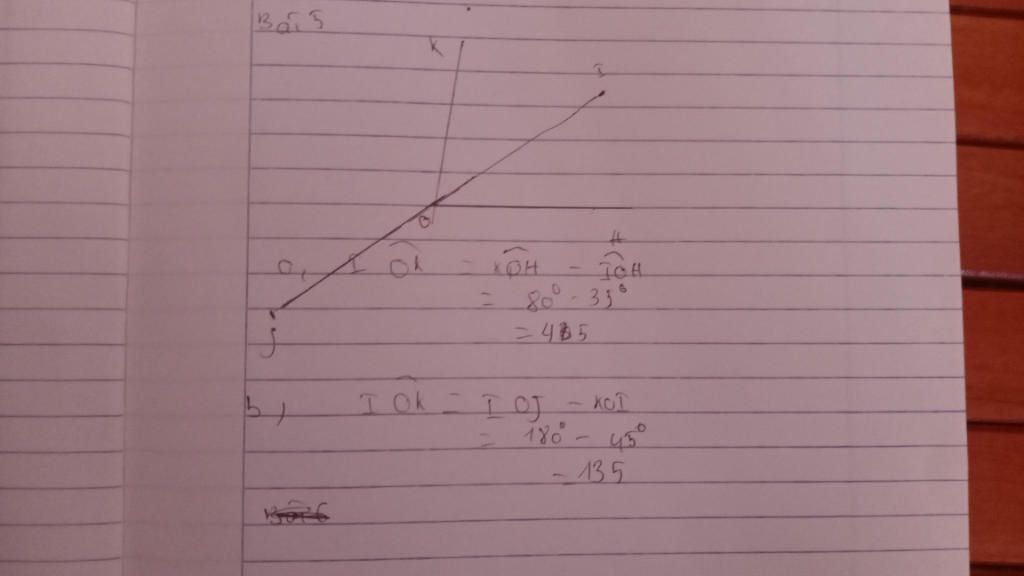 Bài 5
K
I
O
H
a, I OK = KOH - IOH
= 80° - 35°
= 45
J
b, I OK = I OJ - KOI
= 180° - 45°
= 135